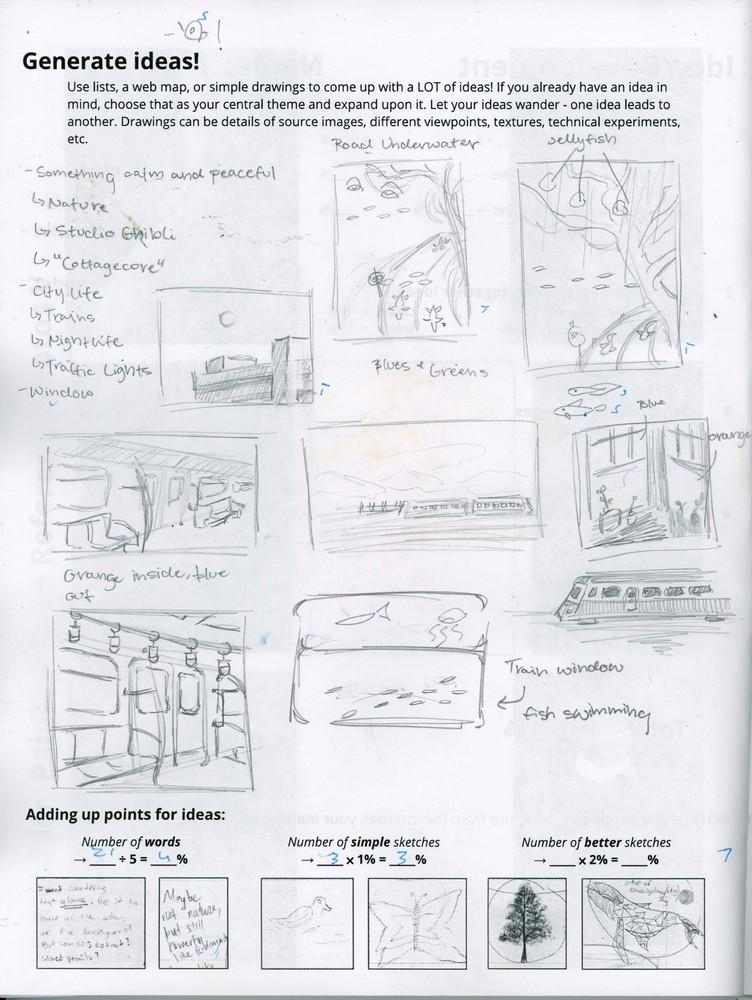 Generate ideas!
Use lists, a web map, or simple drawings to come up with a LOT of ideas! If you already have an idea in
mind, choose that as your central theme and expand upon it. Let your ideas wander - one idea leads to
another. Drawings can be details of source images, different viewpoints, textures, technical experiments,
etc.
Road Underwater
Jellyfish
- Something calm and peaceful
↳ Nature
↳ Studio Ghibli
↳ "Cottagecore"
- City life
↳ Trains
↳ Nightlife
↳ Traffic Lights
- Window
Blues + Greens
Blue
orange
Orange inside, blue
out
Train window
fish swimming
Adding up points for ideas:
Number of words
→ 21 ÷ 5 = 4 %
Number of simple sketches
→ 3 x 1% = 3 %
Number of better sketches
→ ____ x 2% = ____%
7
Maybe
not nature,
but still
powerful
like